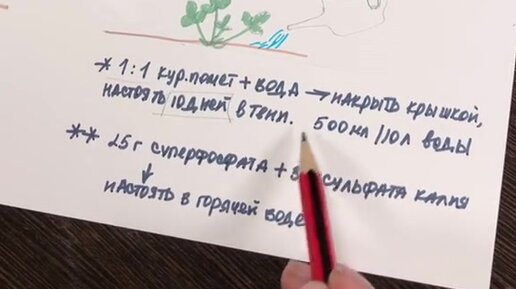 * 1:1 кур.помет + вода → накрыть крышкой,
настоять 10 дней в тепл. 500 мл/10л воды
** 25г суперфосфата + сульфата калия
настоять в горячей воде